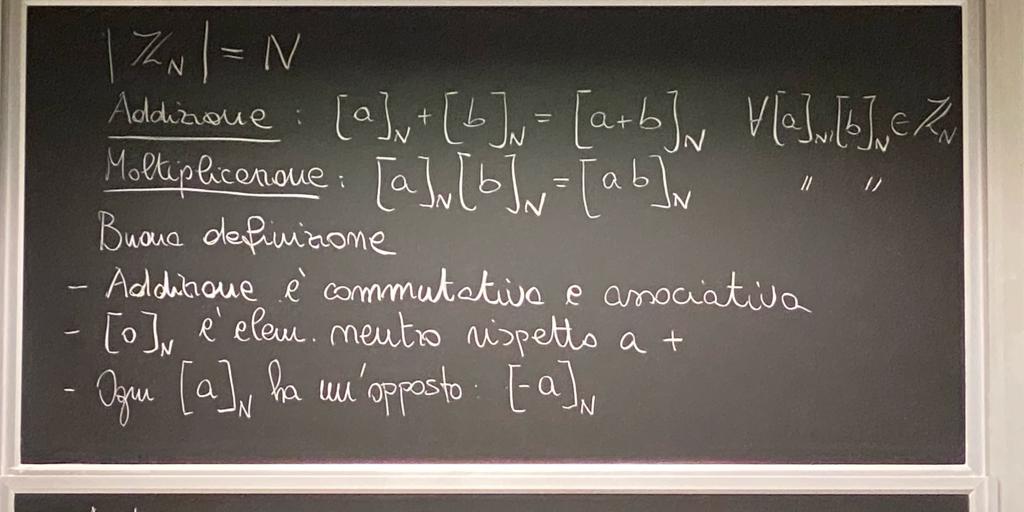 |ℤ_N| = N
Addizione : [a]_N + [b]_N = [a+b]_N ∀[a]_N, [b]_N ∈ ℤ_N
Moltiplicazione : [a]_N [b]_N = [ab]_N " "
Buona definizione
- Addizione è commutativa e associativa
- [0]_N è elem. neutro rispetto a +
- Ogni [a]_N ha un'opposto : [-a]_N